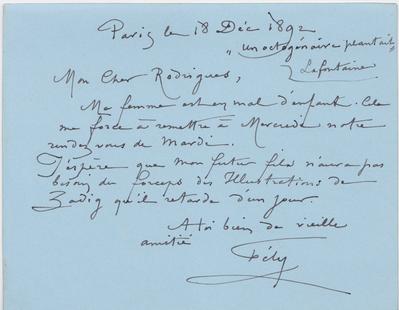 Paris le 18 Déc 1892
"un octogénaire plantait"
Lafontaine
Mon Cher Rodrigues,
Ma femme est en mal d'enfant. Cela
me force à remettre à Mercredi notre
rendez vous de Mardi.
J'espère que mon futur fils n'aura pas
besoin du forceps des Illustrations de
Zadig qu'il retarde d'un jour.
A toi bien de vieille
amitié
Fély